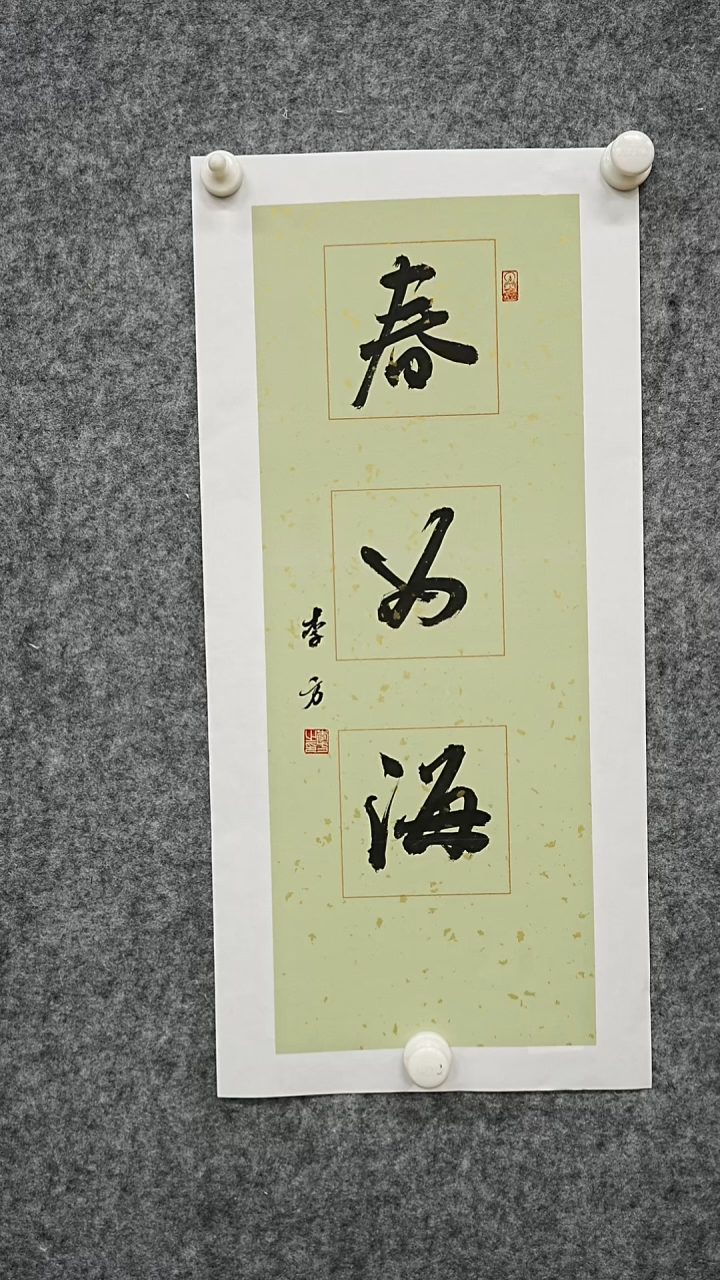 春如海
李方